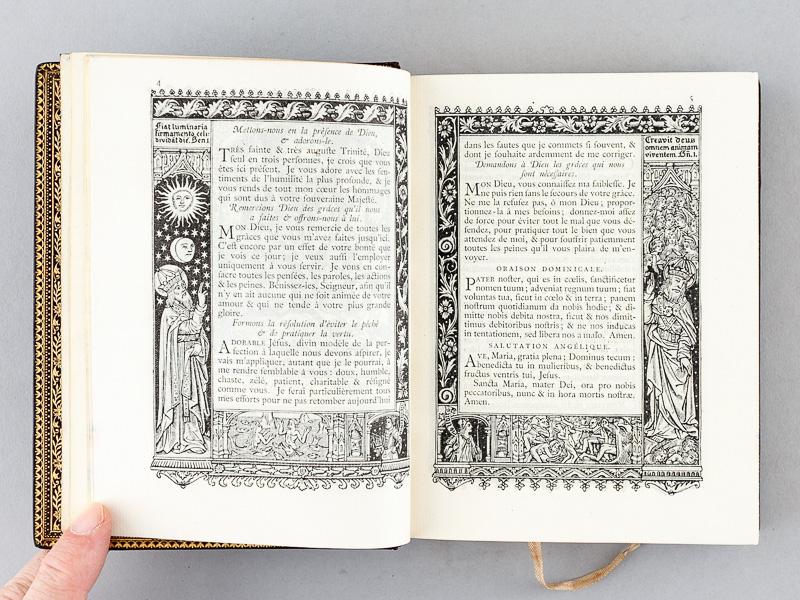 4
Fiat luminaria
firmamento celi
Mettons-nous en la préſence de Dieu,
& adorons-le.
TRÈS ſainte & très auguſte Trinité, Dieu
ſeul en trois perſonnes, je crois que vous
êtes ici préſent. Je vous adore avec les ſen-
timents de l'humilité la plus profonde, & je
vous rends de tout mon cœur les hommages
qui ſont dus à votre ſouveraine Majeſté.
Remercions Dieu des grâces qu'il nous
a faites & offrons-nous à lui.
MON Dieu, je vous remercie de toutes les
grâces que vous m'avez faites juſqu'ici.
C'eſt encore par un effet de votre bonté que
je vois ce jour; je veux auſſi l'employer
uniquement à vous ſervir. Je vous en con-
ſacre toutes les penſées, les paroles, les actions
& les peines. Béniſſez-les, Seigneur, afin qu'il
n'y en ait aucune qui ne ſoit animée de votre
amour & qui ne tende à votre plus grande
gloire.
Formons la réſolution d'éviter le péché
& de pratiquer la vertu.
ADORABLE Jéſus, divin modèle de la per-
fection à laquelle nous devons aſpirer, je
vais m'appliquer, autant que je le pourrai, à
me rendre ſemblable à vous : doux, humble,
chaſte, zélé, patient, charitable & réſigné
comme vous. Je ferai particulièrement tous
mes efforts pour ne pas retomber aujourd'hui
5
dans les fautes que je commets ſi ſouvent, &
dont je ſouhaite ardemment de me corriger.
Demandons à Dieu les grâces qui nous
ſont néceſſaires.
MON Dieu, vous connaiſſez ma faibleſſe. Je
ne puis rien ſans le ſecours de votre grâce.
Ne me la refuſez pas, ô mon Dieu; propor-
tionnez-la à mes beſoins; donnez-moi aſſez
de force pour éviter tout le mal que vous dé-
fendez, pour pratiquer tout le bien que vous
attendez de moi, & pour ſouffrir patiemment
toutes les peines qu'il vous plaira de m'en-
voyer.
ORAISON DOMINICALE.
PATER noſter, qui es in cœlis, ſanctificetur
nomen tuum; adveniat regnum tuum; fiat
voluntas tua, ſicut in cœlo & in terra; panem
noſtrum quotidianum da nobis hodie; & di-
mitte nobis debita noſtra, ſicut & nos dimit-
timus debitoribus noſtris; & ne nos inducas
in tentationem, sed libera nos a malo. Amen.
SALUTATION ANGÉLIQUE.
AVE, Maria, gratia plena; Dominus tecum;
benedicta tu in mulieribus, & benedictus
fructus ventris tui, Jeſus.
Sancta Maria, mater Dei, ora pro nobis
peccatoribus, nunc & in hora mortis noſtræ.
Amen.
Creavit deus
omnem animam
viventem. Gñ. 1.